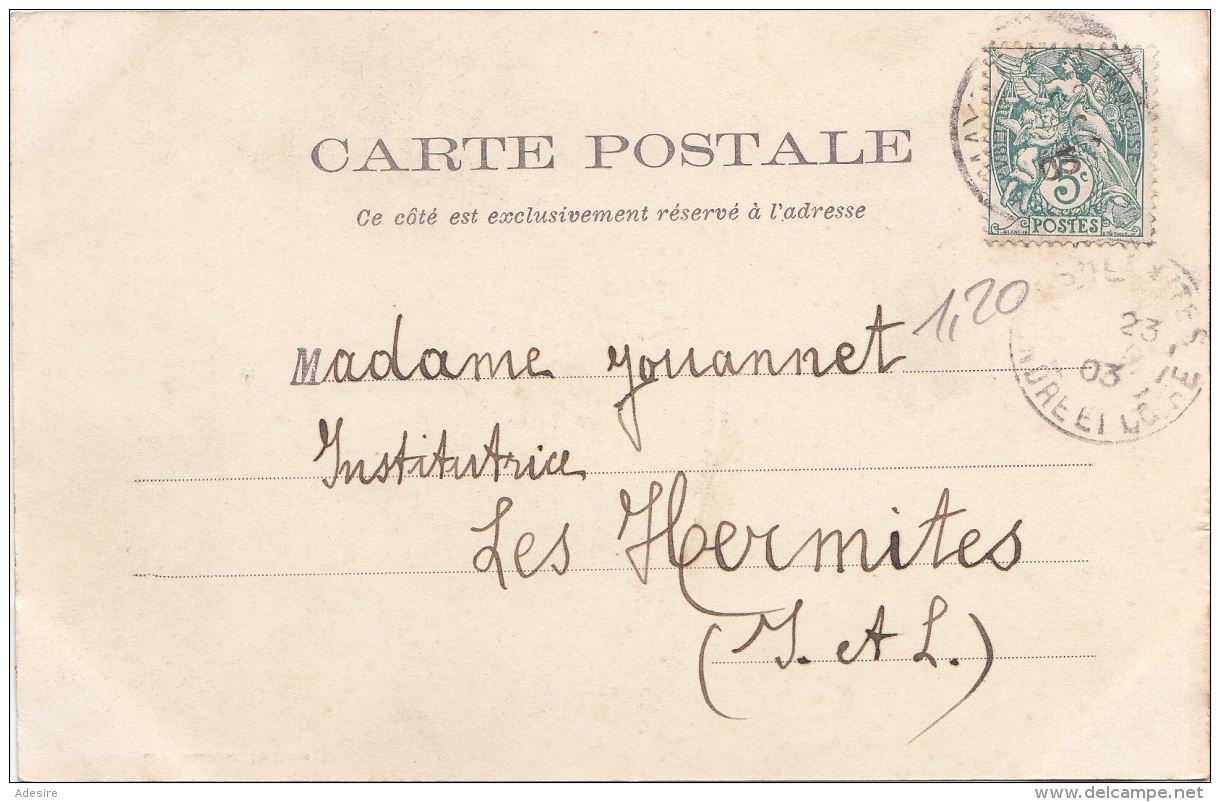 CARTE POSTALE
Ce côté est exclusivement réservé à l'adresse
5c
POSTES
03
1,20
23
03
INDRE ET LOIRE
Madame Jouannet
Institutrice
Les Hermites
(I. et L.)
Adesire
www.delcampe.net